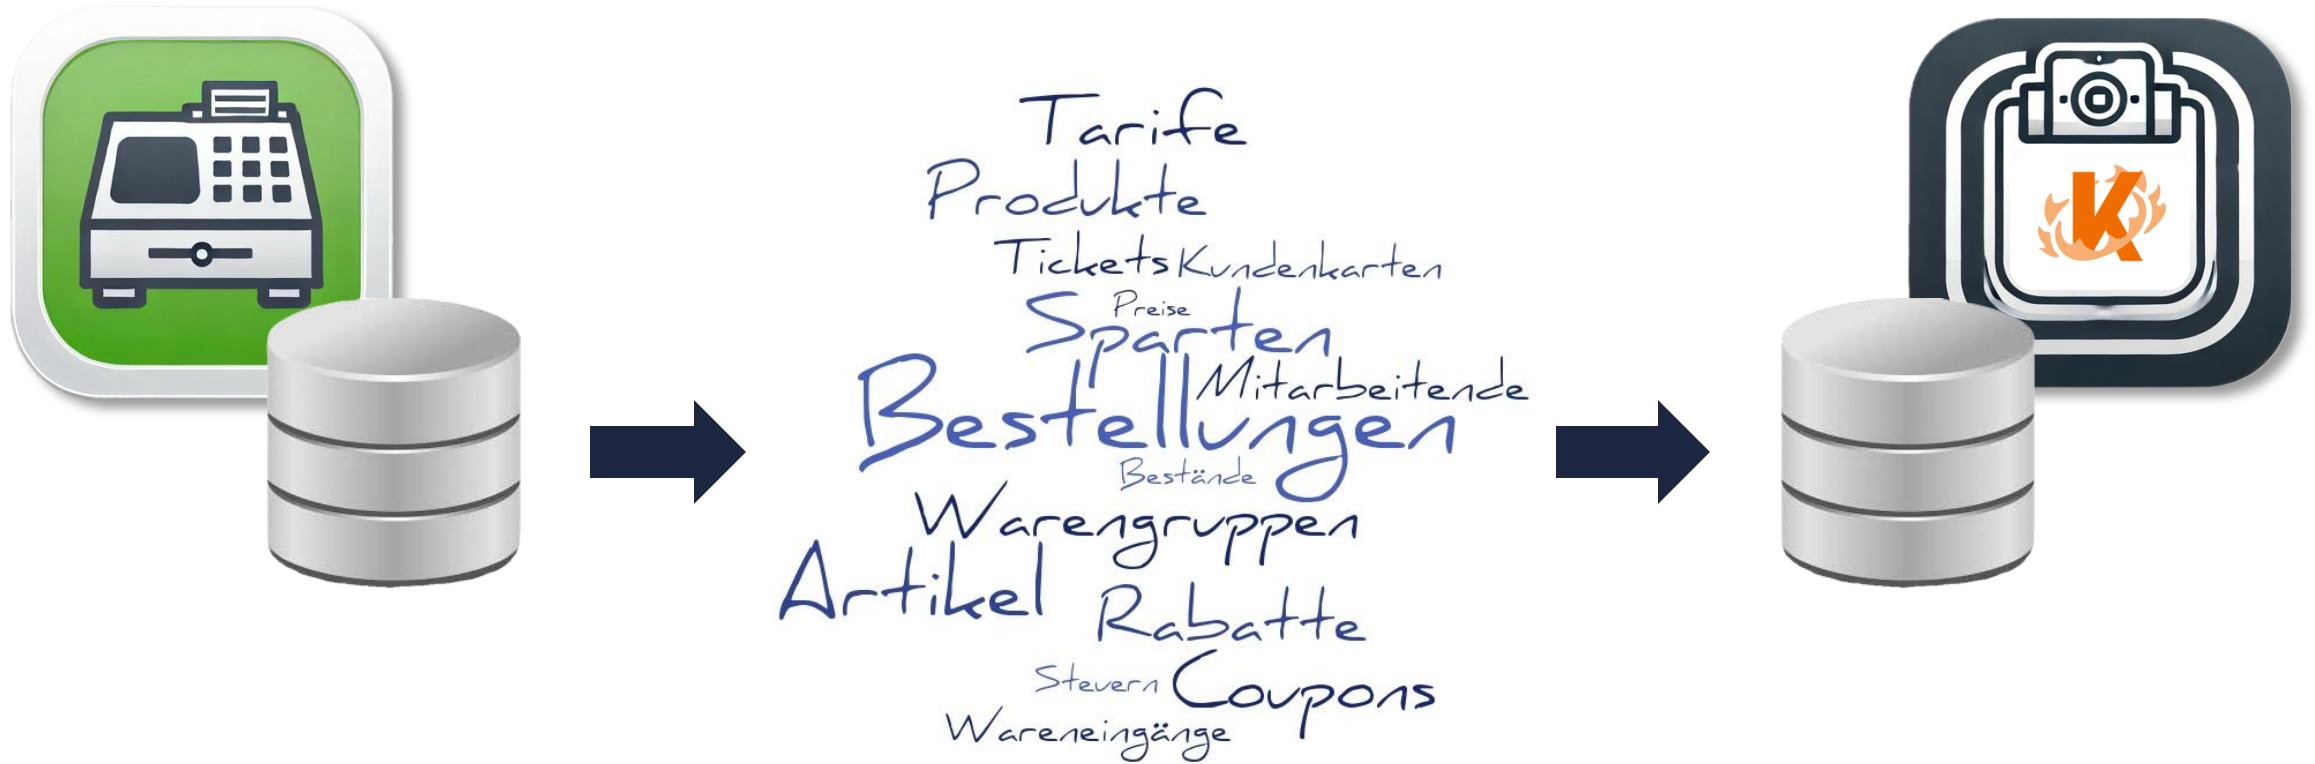 Tarife
Produkte
Tickets Kundenkarten
Preise
Sparten
Mitarbeitende
Bestellungen
Bestände
Warengruppen
Artikel
Rabatte
Steuern Coupons
Wareneingänge
K